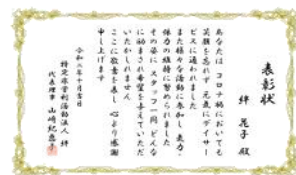 表彰状
絆 花子 殿
あなたは コロナ禍においても
笑顔を忘れず 元気にデイサー
ビスに通われました
また様々な活動に参加し 気力、
体力の維持に努められました
その姿に スタッフ一同 どんな
に励まされ希望を与えていただ
いたかしれません
ここに敬意を表し 心より感謝
申し上げます
令和二年十月吉日
特定非営利活動法人 絆
代表理事 山崎紀恵子